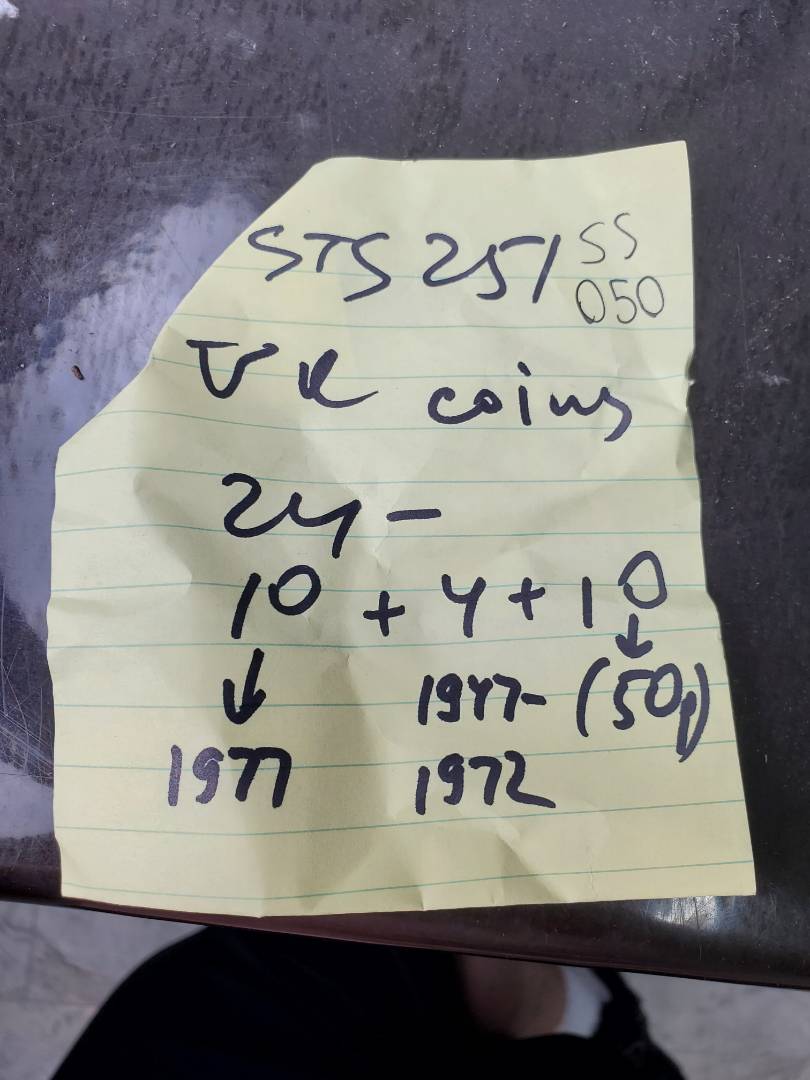 STS 251 SS
050
UK coins
24 -
10 + 4 + 10
↓ ↓
1977 1947- (50p)
1972